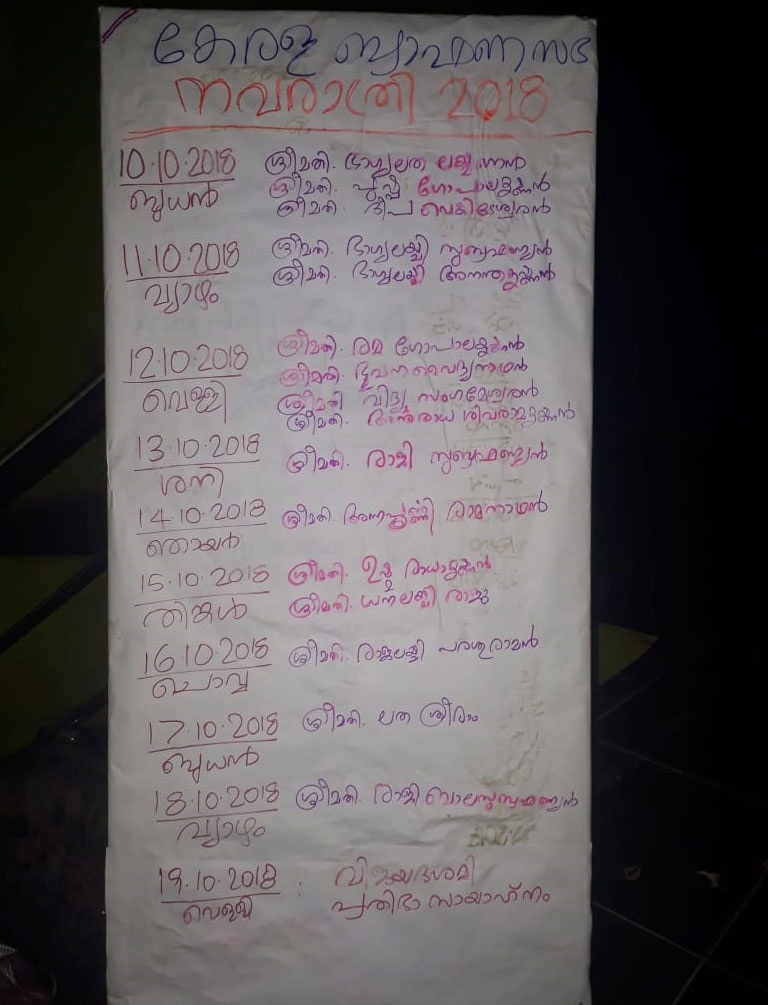 കേരള ബ്രാഹ്മണസഭ
നവരാത്രി 2018
10.10.2018 ശ്രീമതി. ഭാഗ്യലത ലക്ഷ്മണൻ
ബുധൻ ശ്രീമതി. പുഷ്പ ഗോപാലകൃഷ്ണൻ
ശ്രീമതി. ദീപ വെങ്കിടേശ്വരൻ
11.10.2018 ശ്രീമതി. ഭാഗ്യലക്ഷ്മി സുബ്രഹ്മണ്യൻ
വ്യാഴം ശ്രീമതി. ഭാഗ്യലക്ഷ്മി അനന്തകൃഷ്ണൻ
12.10.2018 ശ്രീമതി. രമ ഗോപാലകൃഷ്ണൻ
ശ്രീമതി. ഭുവന വൈദ്യനാഥൻ
വെള്ളി ശ്രീമതി വിദ്യ സംഗമേശ്വരൻ
ശ്രീമതി. അനുരാധ ശിവരാമകൃഷ്ണൻ
13.10.2018 ശ്രീമതി. രാജി സുബ്രഹ്മണ്യൻ
ശനി
14.10.2018 ശ്രീമതി. അന്നപൂർണ്ണി രാമനാഥൻ
ഞായർ
15.10.2018 ശ്രീമതി. ഉഷ രാധാകൃഷ്ണൻ
തിങ്കൾ ശ്രീമതി. ധനലക്ഷ്മി രാജു
16.10.2018 ശ്രീമതി. രാജലക്ഷ്മി പരശുരാമൻ
ചൊവ്വ
17.10.2018 ശ്രീമതി. ലത ശ്രീരാം
ബുധൻ
18.10.2018 ശ്രീമതി. രാജി ബാലസുബ്രഹ്മണ്യൻ
വ്യാഴം
19.10.2018 : വിജയദശമി
വെള്ളി പ്രതിഭാ സായാഹ്നം